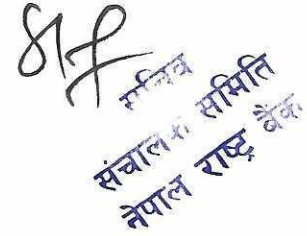 सचिव
संचालक समिति
नेपाल राष्ट्र बैंक